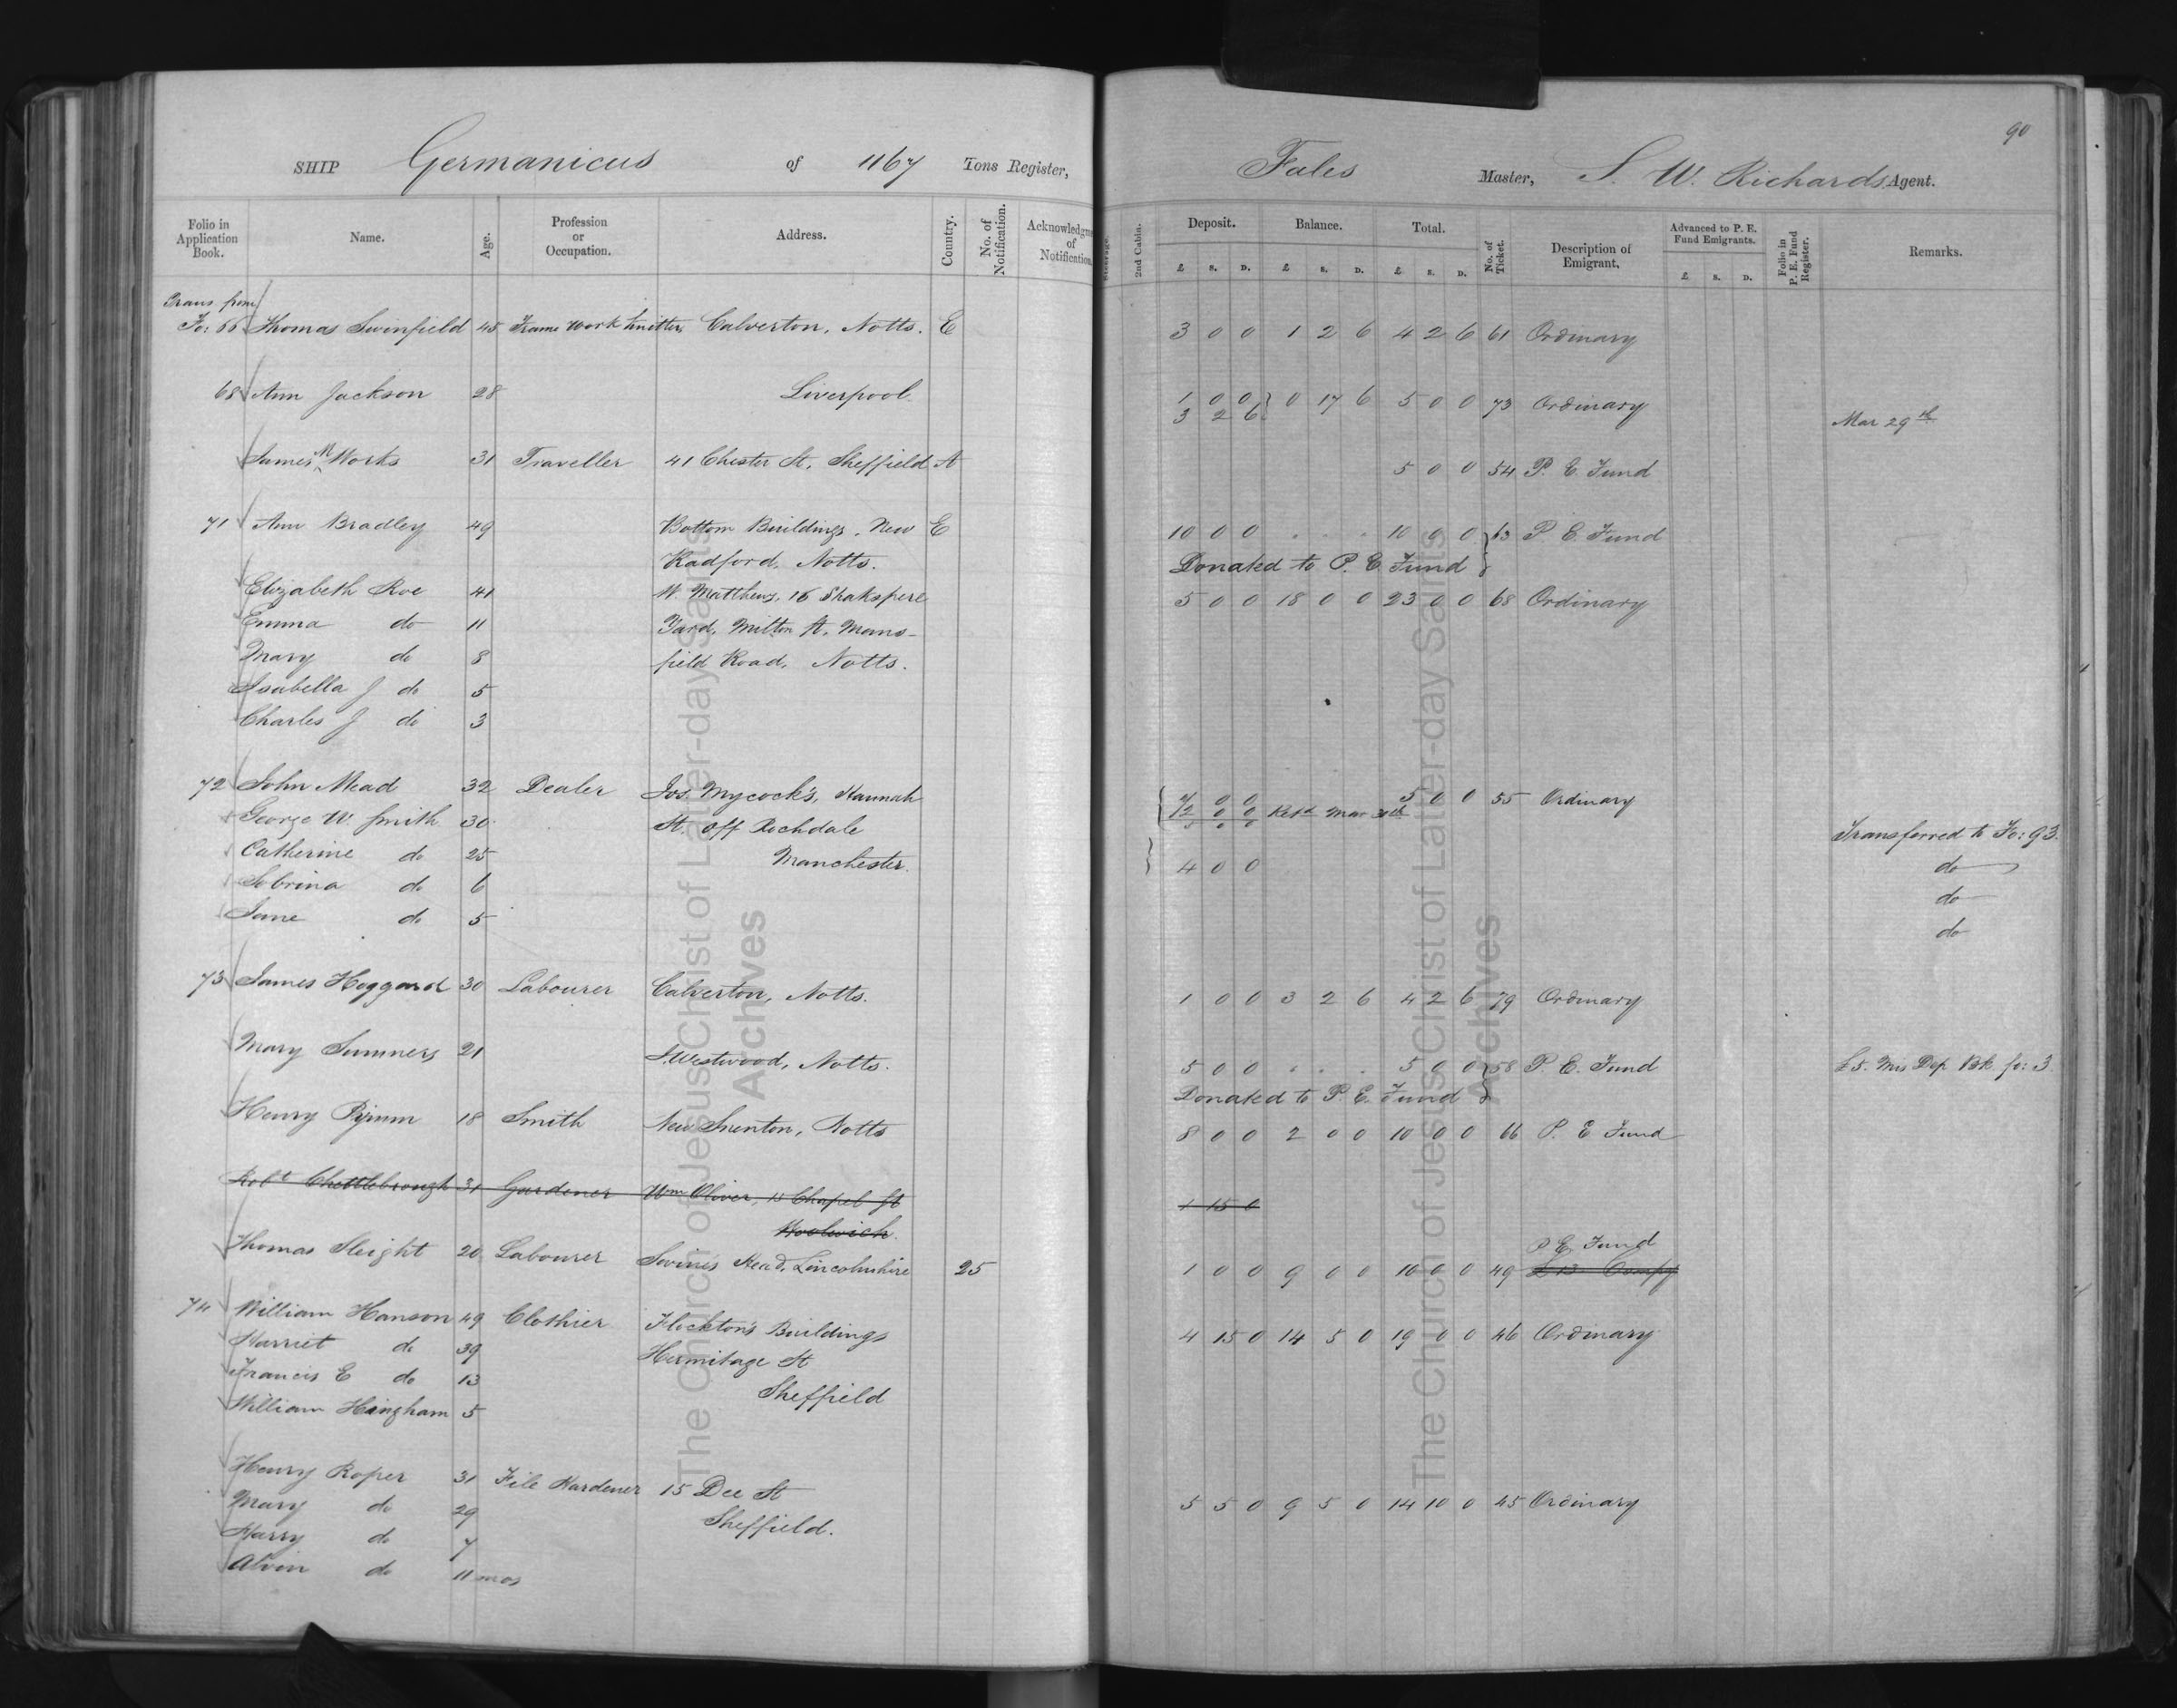 90
SHIP Germanicus of 1167 Tons Register, Fales Master, S. W. Richards Agent.
Folio in Application Book. Name. Age. Profession or Occupation. Address. Country. No. of Notification. Acknowledgme of Notification. Steerage. 2nd Cabin. Deposit. Balance. Total. No. of Ticket. Description of Emigrant. Advanced to P. E. Fund Emigrants. Folio in P. E. Fund Register. Remarks.
£ s. D. £ s. D. £ s. D. £ s. D.
Trans from
Fo: 66 Thomas Swinfield 45 Frame Work Knitter Calverton, Notts. E 3 0 0 1 2 6 4 2 6 61 Ordinary
68 Ann Jackson 28 Liverpool 1 0 0 } 0 17 6 5 0 0 73 Ordinary
3 2 6 Mar 29th
James M Works 31 Traveller 41 Chester St, Sheffield A 5 0 0 54 P. E. Fund
71 Ann Bradley 49 Bottom Buildings, New E 10 0 0 . . . 10 0 0 } 63 P E. Fund
Radford, Notts. Donated to P. E. Fund
Elizabeth Roe 41 W. Matthews, 16 Shakspere 5 0 0 18 0 0 23 0 0 68 Ordinary
Emma do 11 Yard, Milton St, Mans-
Mary do 8 field Road, Notts.
Isabella J do 5
Charles J do 3
72 John Mead 32 Dealer Jos. Mycock's, Hannah 5 0 0 55 Ordinary
George W. Smith 30 St. off Rochdale 2 0 0 Retd Mar 30th Transferred to Fo: 93.
Catherine do 25 Manchester. 4 0 0 do
Sobrina do 6 do
Jane do 5 do
73 James Hoggard 30 Labourer Calverton, Notts. 1 0 0 3 2 6 4 2 6 79 Ordinary
Mary Sumners 21 Westwood, Notts. 5 0 0 . . . 5 0 0 } 58 P. E. Fund £5. Mis Dep. Bk fo: 3
Donated to P. E. Fund
Henry Pymm 18 Smith New Snenton, Notts 8 0 0 2 0 0 10 0 0 66 P. E Fund
Robt Chettlebrough 31 Gardener Wm Oliver, 15 Chapel St 1 15 0
Woolwich.
P E, Fund
Thomas Sleight 20 Labourer Swines Head, Lincolnshire 25 1 0 0 9 0 0 10 0 0 49 £13 Compy
74 William Hanson 49 Clothier Flockton's Buildings 4 15 0 14 5 0 19 0 0 46 Ordinary
Harriet do 39 Hermitage St
Francis E do 13 Sheffield
William Hingham 5
Henry Roper 31 File Hardener 15 Dee St 5 5 0 9 5 0 14 10 0 45 Ordinary
Mary do 29 Sheffield.
Harry do 7
Alvin do 11 mos
The Church of Jesus Christ of Latter-day Saints
Archives
The Church of Jesus Christ of Latter-day Saints
Archives